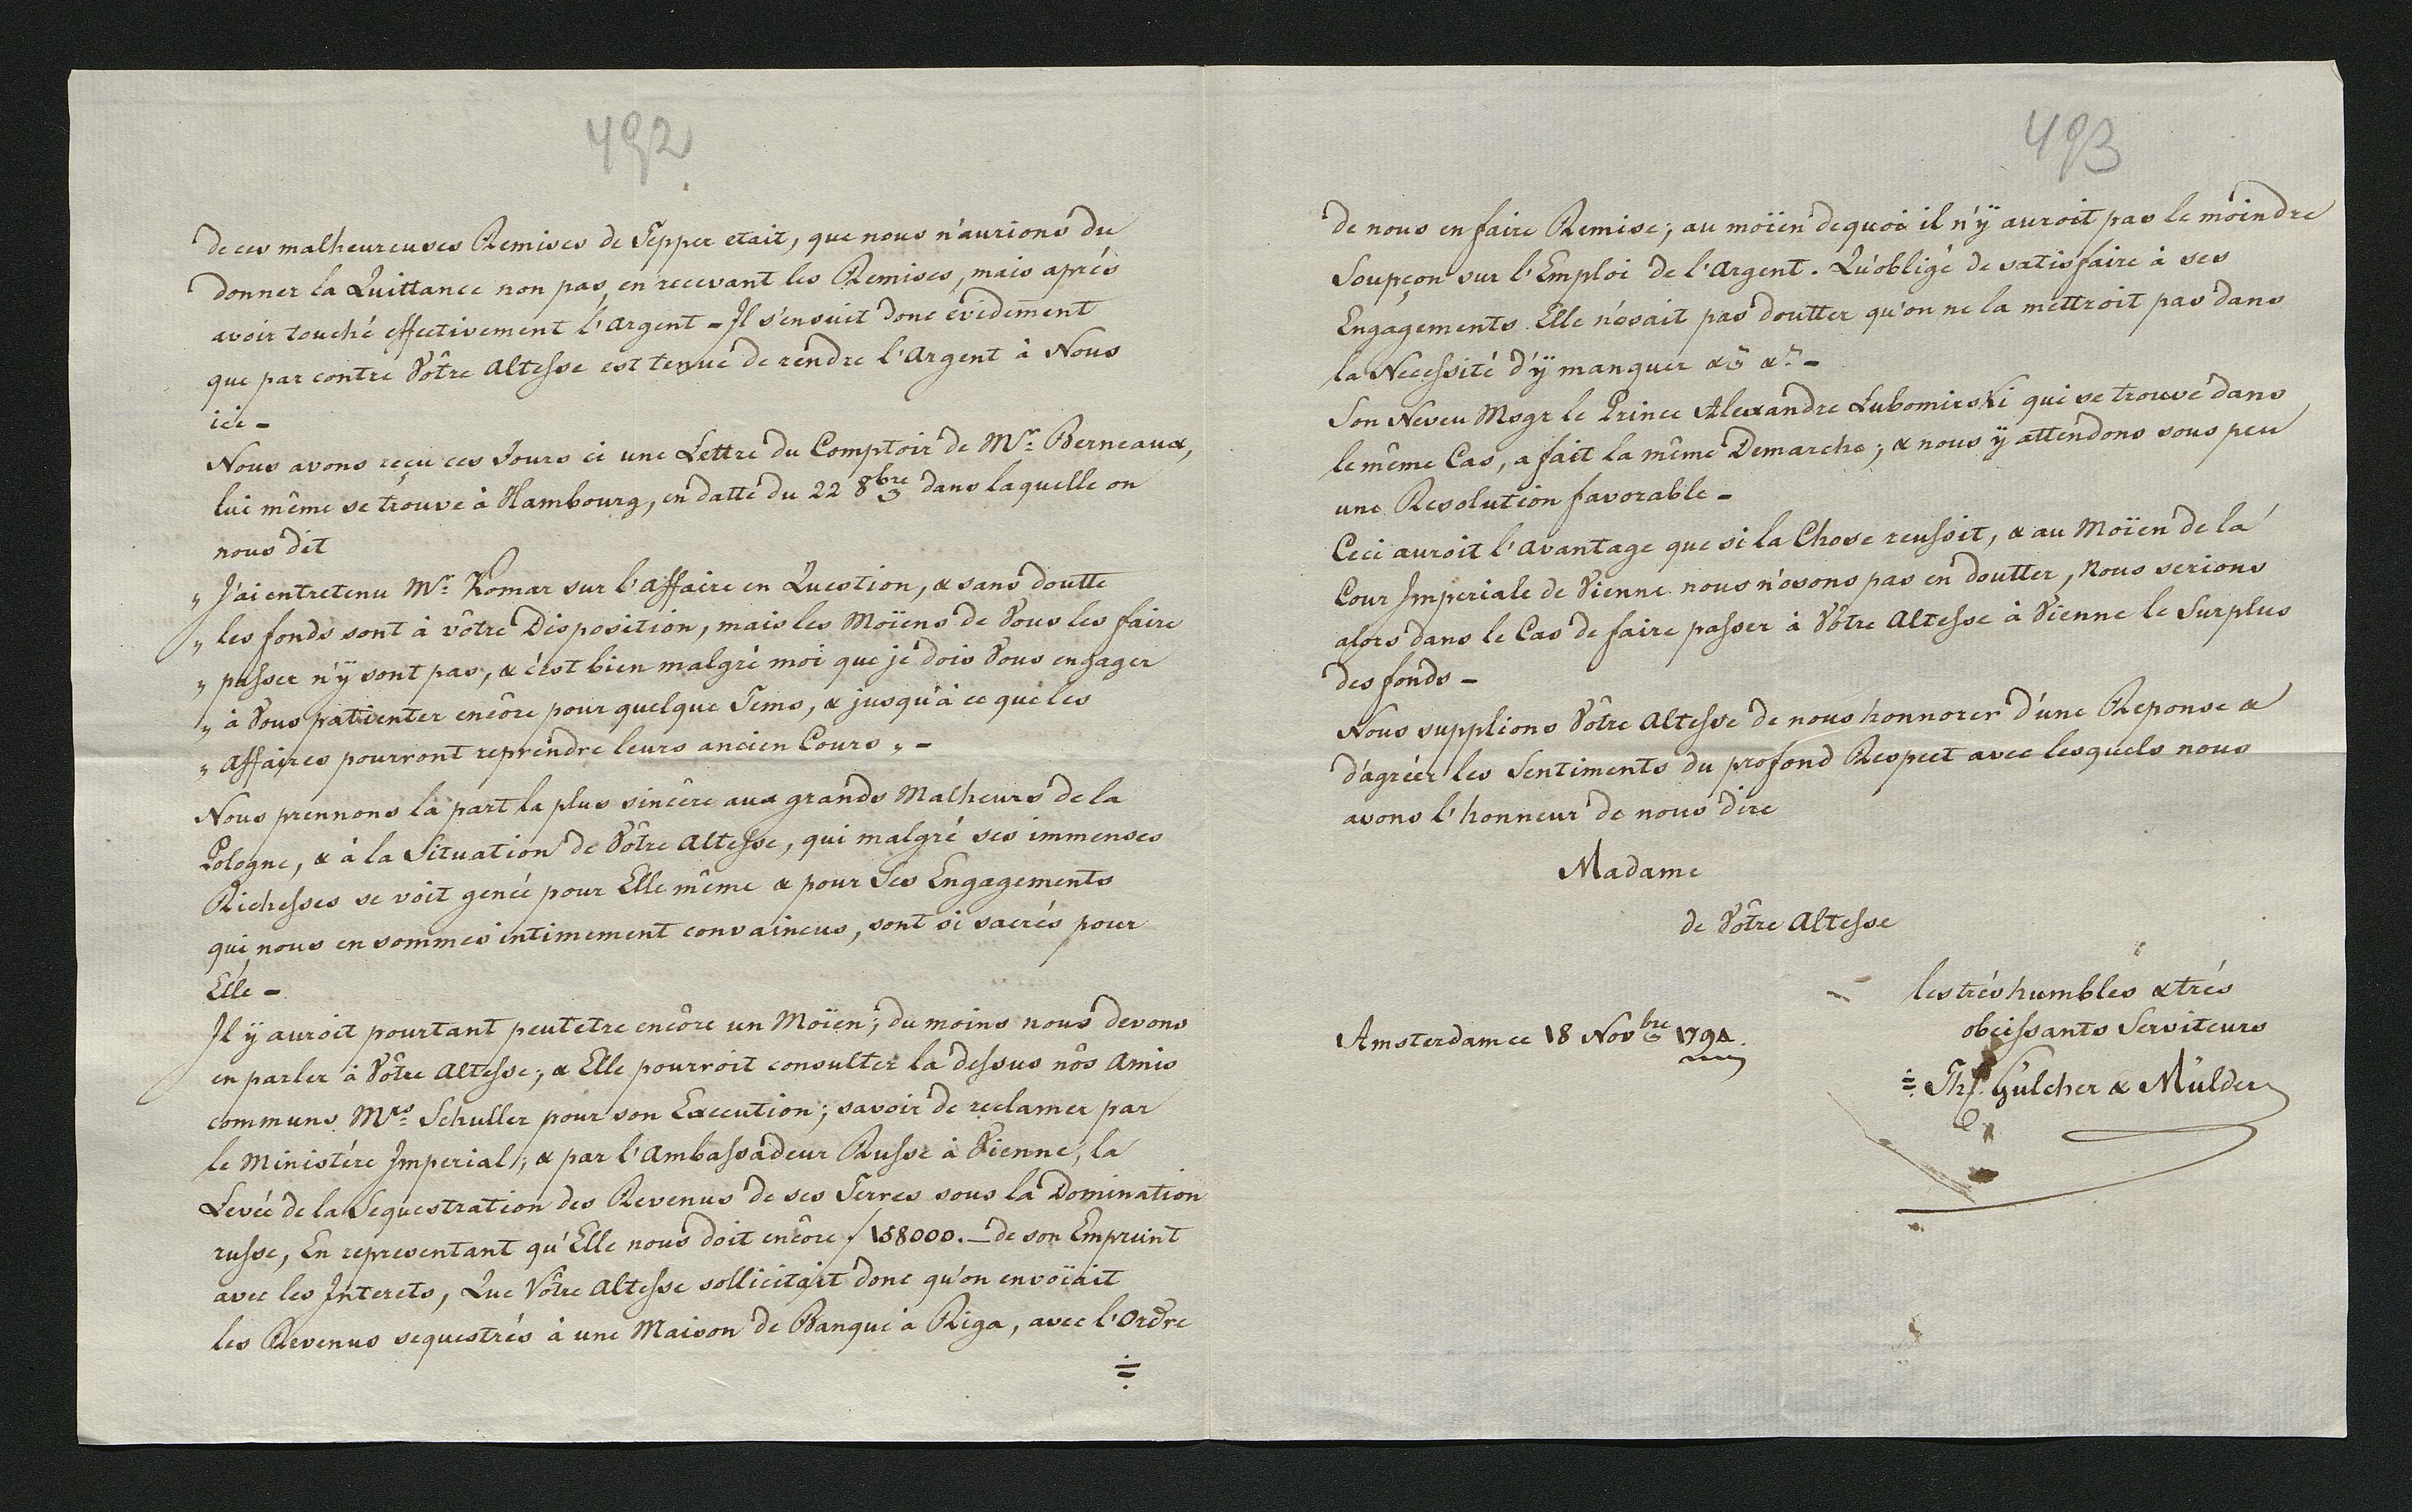 492
de ces malheureuses Remises de Tepper etait, que nous n'aurions du
donner la Quittance non pas en recevant les Remises, mais aprés
avoir touché effectivement l'argent - Il s'ensuit donc évidement
que par contre Vôtre Altesse est tenue de rendre l'Argent à Nous
ici -
Nous avons reçu ces Jours ci une Lettre du Comptoir de Mr. Berneaux,
lui même se trouve à Hambourg, en datte du 22 8bre dans laquelle on
nous dit
„ J'ai entretenu Mr. Komar sur l'affaire en Question, & sans doutte
„ les fonds sont à vôtre Disposition, mais les Moïens de Vous les faire
„ passer n'ÿ sont pas, & c'est bien malgré moi que je dois Vous engager
„ à Vous patienter encôre pour quelque Tems, & jusqu'à ce que les
„ affaires pourront reprendre leurs ancien Cours „ -
Nous prennons la part la plus sincêre aux grands Malheurs de la
Pologne, & à la Situation de Vôtre Altesse, qui malgré ses immenses
Richesses se voit genée pour Elle même & pour Ses Engagements
qui nous en sommes intimement convaincus, sont si sacrés pour
Elle -
Il ÿ auroit pourtant peutetre encôre un Moïen; du moins nous devons
en parler à Vôtre Altesse; & Elle pourroit consulter la dessus nôs Amis
communs Mrs. Schuller pour son Execution; savoir de reclamer par
le Ministére Imperial; & par l'Ambassadeur Russe à Vienne, la
Levée de la Sequestration des Revenus de ses Terres sous la Domination
russe, En representant qu'Elle nous doit encôre f 158000. - de son Emprunt
avec les Interets, Que Vôtre Altesse sollicitait donc qu'on envoïait
les Revenus sequestrés à une Maison de Banque à Riga, avec l'Ordre
493
de nous en faire Remise; au moïen dequoi il n'ÿ auroit pas le moindre
Soupçon sur l'Emploi de l'Argent. Qu'obligé de satisfaire à ses
Engagements Elle n'osait pas doutter qu'on ne la mettroit pas dans
la Necessité d'ÿ manquer &c &c -
Son Neveu Msgr le Prince Alexandre Lubomirski qui se trouve dans
le même Cas, a fait la même Demarche; & nous ÿ attendons sous peu
une Resolution favorable -
Ceci auroit l'avantage que si la Chose reussit, & au Moïen de la
Cour Imperiale de Vienne nous n'osons pas en doutter, Nous serions
alors dans le Cas de faire passer à Vôtre Altesse à Vienne le Surplus
des fonds -
Nous supplions Vôtre Altesse de nous honnorer d'une Reponse &
d'agréer les Sentiments du profond Respect avec lesquels nous
avons l'honneur de nous dire
Madame
de Vôtre Altesse
les trés humbles & trés
obeissants Serviteurs
Amsterdam ce 18 Novbre 1794.
Ths. Gülcher & Mülder